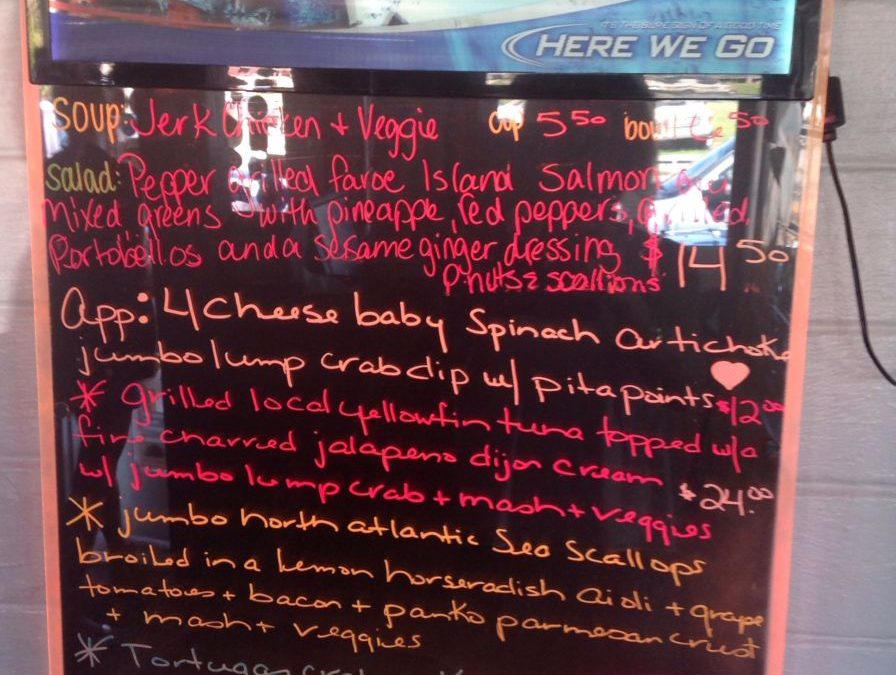 HERE WE GO
Soup: Jerk Chicken + Veggie cup 5 50 bowl 50
Salad: Pepper grilled faroe Island Salmon
Mixed greens with pineapple, red peppers, grilled
Portobellos and a sesame ginger dressing $14 50
P-nuts & scallions
App: 4 Cheese baby Spinach artichoke
jumbo lump crab dip w/ pita points $12.00
* grilled local yellowfin tuna topped w/a
fire charred jalapeno dijon cream
w/ jumbo lump crab + mash + veggies $24.00
* jumbo north atlantic Sea Scallops
broiled in a lemon horseradish aioli + grape
tomatoes + bacon + panko parmesan crust
+ mash + veggies
* Tortugas